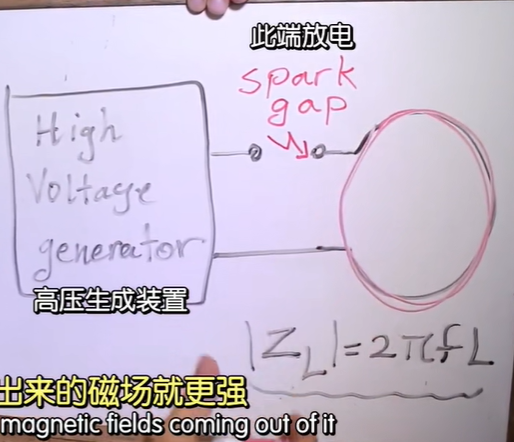 此端放电
spark
gap
High
Voltage
generator
高压生成装置
|Z_L|=2πfL
出来的磁场就更强
magnetic fields coming out of it